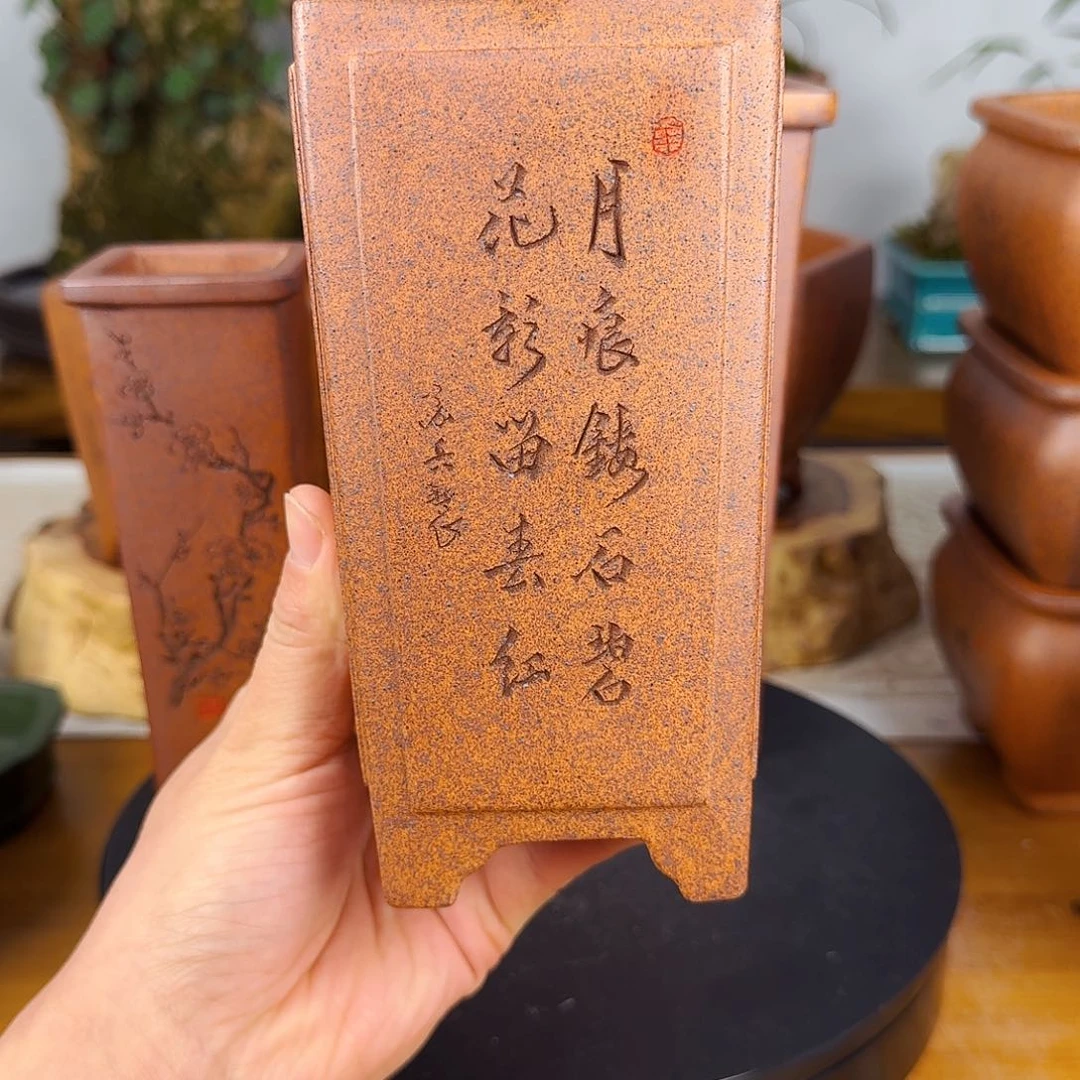 月痕鏤石碧
花影留春紅